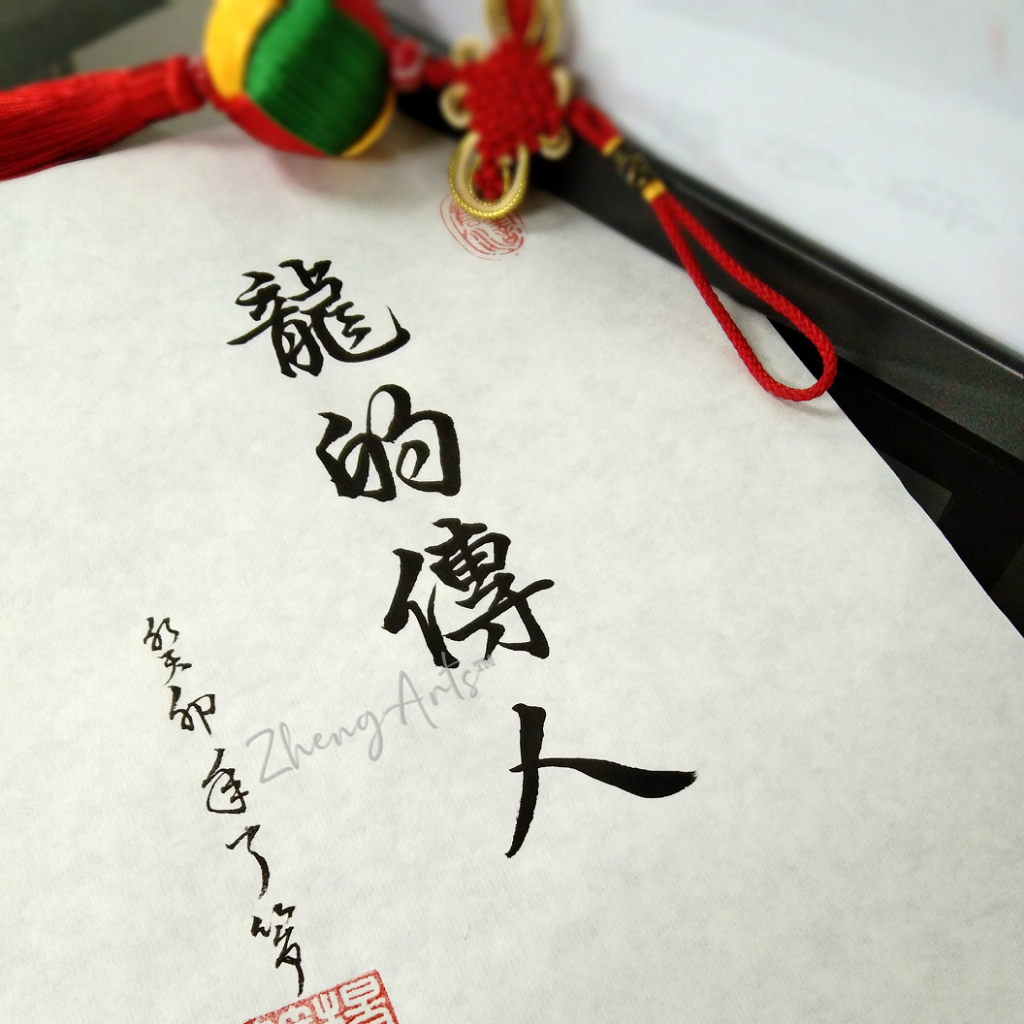 龍的傳人
癸卯年
ZhengArts™